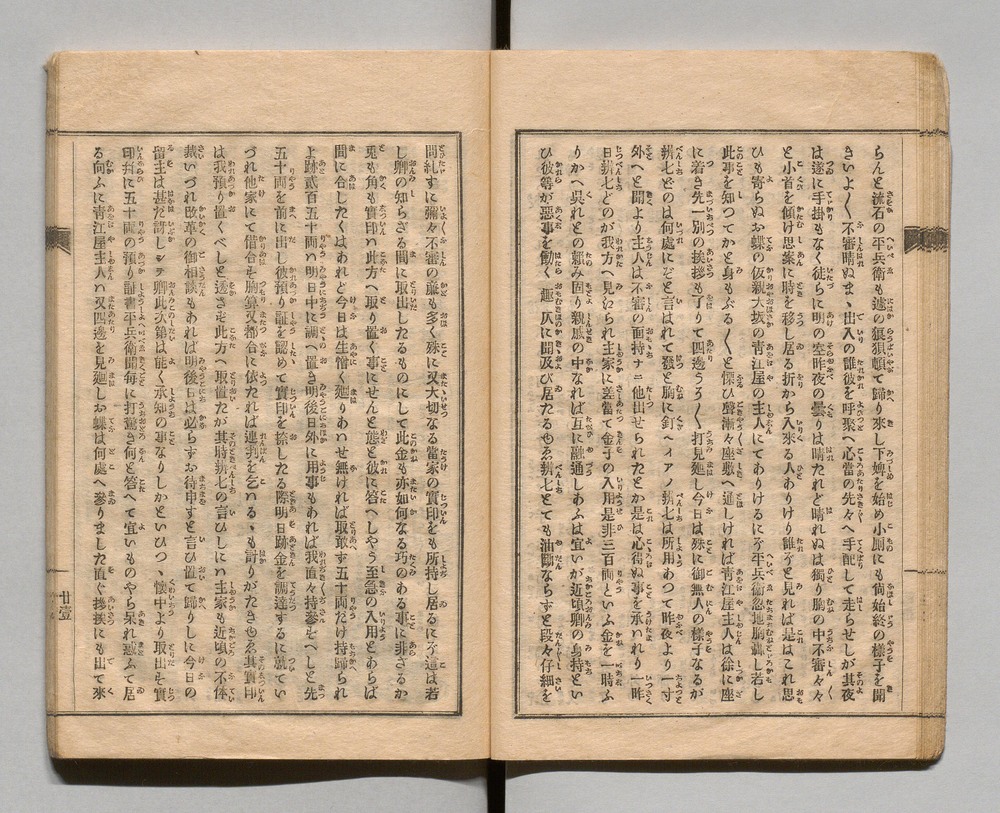 らんと流石の平兵衛も遽の狼狽頓て歸り來し下婢を始め小厠にも倘始終の様子を聞
きいよ〱不審晴ぬまゝ出入の誰彼を呼聚へ心當の先々へ手配して走らせしが其夜
は遂に手掛もなく徒らに明の空昨夜の曇りは晴たれど晴れぬは獨り胸の中不審々々
と小首を傾け思案に時を移し居る折から入來る人ありけり誰ぞと見れば是はこれ思
ひも寄らぬお蝶の仮親大坂の青江屋の主人にてありけるにぞ平兵衛忽地胸轟し若し
此事を知つてかと身もぶる〱と慄ひ聲漸々座敷へ通しければ青江屋主人は徐に座
に着き先一別の挨拶も了りて四邊うろ〱打見廻し今日は殊に御無人の様子なるが
辨七どのは何處にぞと言はれて發と胸に釘へイアノ辨七は所用あつて昨夜より一寸
外へと聞より主人は不審の面持ナニ他出せられたとか是は心得ぬ事を承いれり一昨
日辨七どのが我方へ見られ主家に差當て金子の入用是非三百両といふ金を一時ふ
りかへ呉れとの頼み固り親戚の中なれば互に融通しあふは宜いが近頃卿の身持とい
ひ彼等が惡事を働く趣仄に聞及び居たるゆゑ辨七とても油斷ならずと段々仔細を
問糺すに彌々不審の廉も多く殊に又大切なる當家の實印をも所持し居るにぞ這は若
し卿の知らざる間に取出したるものにして此金も亦如何なる巧のある事に非ざるか
兎も角も實印は此方へ取り置く事にせんと態と彼に答へしやう至急の入用とあらば
間に合したくはあれど今日は生憎く廻りあいせ無ければ取敢す五十両だけ持歸られ
よ跡貳百五十両は明日中に調へ置き明後日外に用事もあれば我直々持參すべしと先
五十両を前に出し彼預り証を認めて實印を捺したる際明日跡金を調達するに就てい
づれ他家にて借合も胸算又都合に依たれば連判を乞はるゝも計りがたきゆゑ其實印
は我預り置くべしと透さず此方へ取置たが其時辨七の言ひしには主家も近頃の不体
裁いづれ改革の御相談もあれば明後日は必らずお待申すと言ひ置て歸りしに今日の
留主は甚だ訝しシテ卿此次第は能く承知の事なりしかといひつゝ懷中より取出す實
印幷に五十両の預り証書平兵衛聞毎に打驚き何と答へて宜いものやら呆れ惑ふて居
る向ふに青江屋主人は又四邊を見廻しお蝶は何處へ參りました直ぐ挨拶にも出て來
廿壹